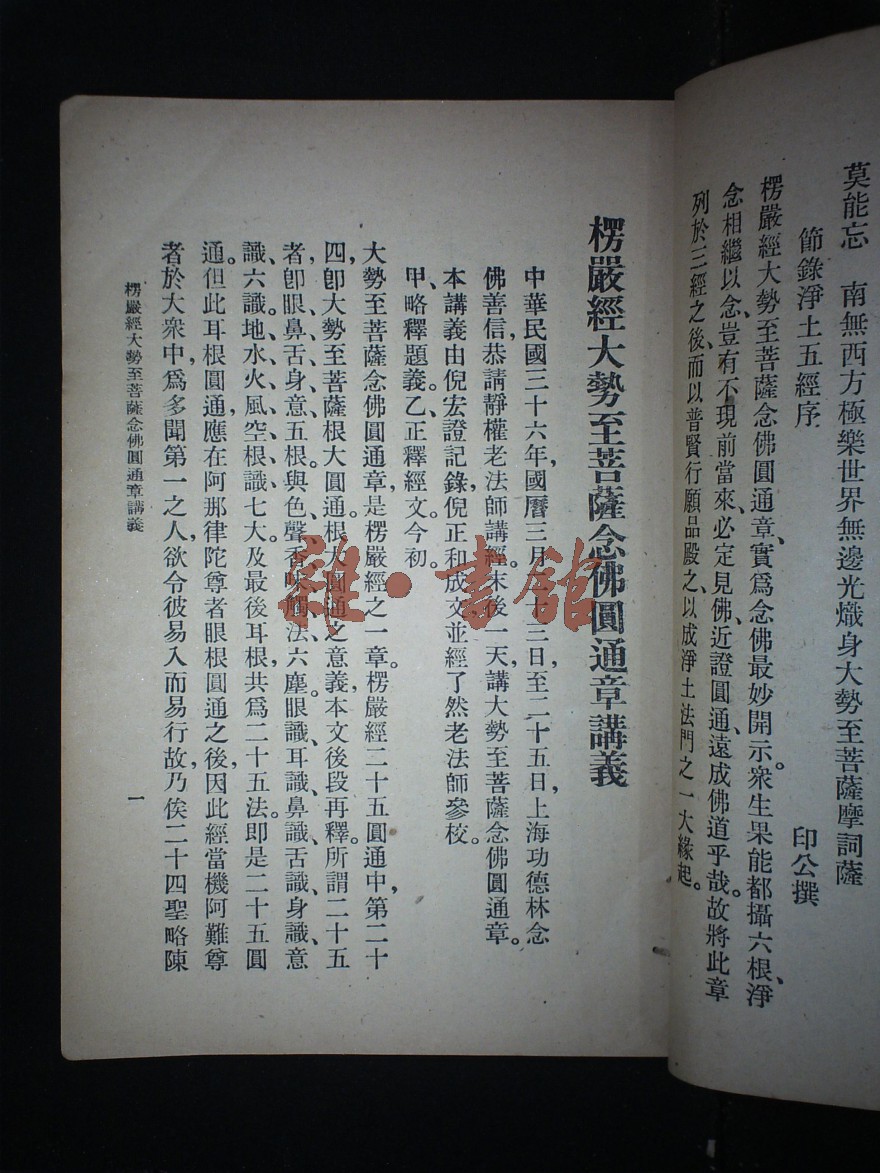 莫能忘　南無西方極樂世界無邊光熾身大勢至菩薩摩訶薩
節錄淨土五經序
印公撰
楞嚴經大勢至菩薩念佛圓通章、實爲念佛最妙開示。衆生果能都攝六根、淨
念相繼以念、豈有不現前當來、必定見佛、近證圓通、遠成佛道乎哉。故將此章
列於三經之後、而以普賢行願品殿之、以成淨土法門之一大緣起。
楞嚴經大勢至菩薩念佛圓通章講義
中華民國三十六年國曆三月二十三日、至二十五日、上海功德林念
佛善信、恭請靜權老法師講經。末後一天、講大勢至菩薩念佛圓通章。
本講義由倪宏證記錄、倪正和成文、並經了然老法師參校。
甲、略釋題義。乙、正釋經文。今初。
大勢至菩薩念佛圓通章、是楞嚴經之一章。楞嚴經二十五圓通中、第二十
四、卽大勢至菩薩根大圓通。根大圓通之意義、本文後段再釋。所謂二十五
者、卽眼鼻舌身意五根、與色聲香味觸法六塵、眼識、耳識、鼻識、舌識、身識、意
識、六識、地水火風空根識七大。及最後耳根、共爲二十五法。卽是二十五圓
通。但此耳根圓通、應在阿那律陀尊者眼根圓通之後、因此經當機阿難尊
者於大衆中、爲多聞第一之人、欲令彼易入而易行故、乃俟二十四聖略陳
楞嚴經大勢至菩薩念佛圓通章講義
一
雜·書館